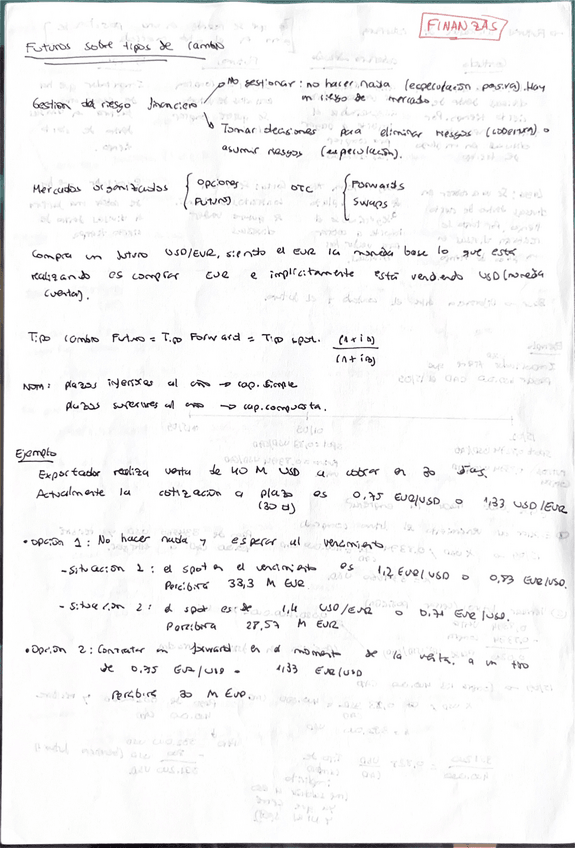 FINANZAS
Futuros sobre tipos de cambio
No gestionar: no hacer nada (especulación pasiva). Hay
un riesgo de mercado
Gestión del riesgo financiero
Tomar decisiones para eliminar riesgos (cobertura) o
asumir riesgos (especulación).
Mercados organizados { Opciones Futuros OTC { Forwards Swaps
Compra un futuro USD/EUR, siendo el EUR la moneda base lo que está
realizando es comprar EUR e implícitamente está vendiendo USD (moneda
cuenta).
Tipo cambio Futuro = Tipo Forward = Tipo spot. (1+i
(1+i
Nom: plazos inferiores al año → cap. simple
plazos superiores al año → cap. compuesta.
Ejemplo
Exportador realiza venta de 40 M USD a cobrar en 30 días.
Actualmente la cotización a plazo es 0,75 EUR/USD o 1,33 USD/EUR
(30 d)
• Opción 1: No hacer nada y esperar al vencimiento
- Situación 1: el spot en el vencimiento es 1,2 EUR/USD o 0,83 EUR/USD.
Percibirá 33,3 M EUR.
- Situación 2: el spot es de 1,4 USD/EUR o 0,71 EUR/USD.
Percibirá 28,57 M EUR
• Opción 2: Contratar un forward en el momento de la venta, a un tipo
de 0,75 EUR/USD 1,33 EUR/USD
Percibirá 30 M EUR.